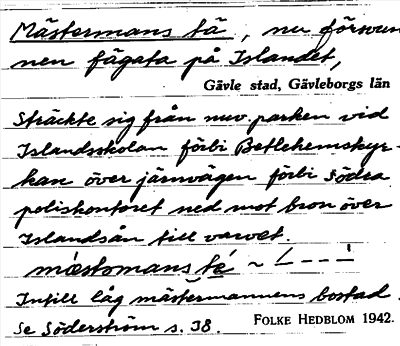 Mästermans tä, nu försvun-
nen fägata på Islandet,
Gävle stad, Gävleborgs län
Sträckte sig från nuv. parken vid
Islandsskolan förbi Betlehemskyr-
kan över järnvägen förbi Södra
poliskontoret ned mot bron över
Islandsån till varvet.
mæstomans té ~ ⊥ - - - '
Intill låg mästermannens bostad.
Se Söderström s. 38.
FOLKE HEDBLOM 1942.